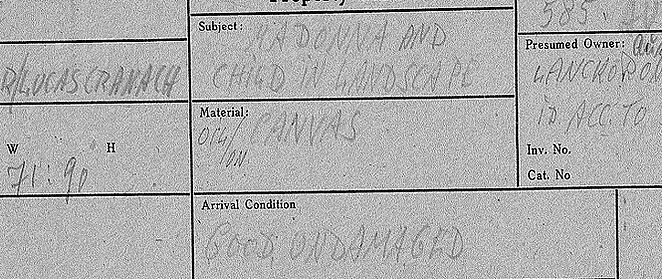 Property
585.
Subject:
MADONNA AND
CHILD IN LANDSCAPE
Presumed Owner:
R/LUCAS CRANACH
ID ACC. TO
Material:
OIL/ON CANVAS
Inv. No.
Cat. No
W H
71 : 90
Arrival Condition
GOOD UNDAMAGED